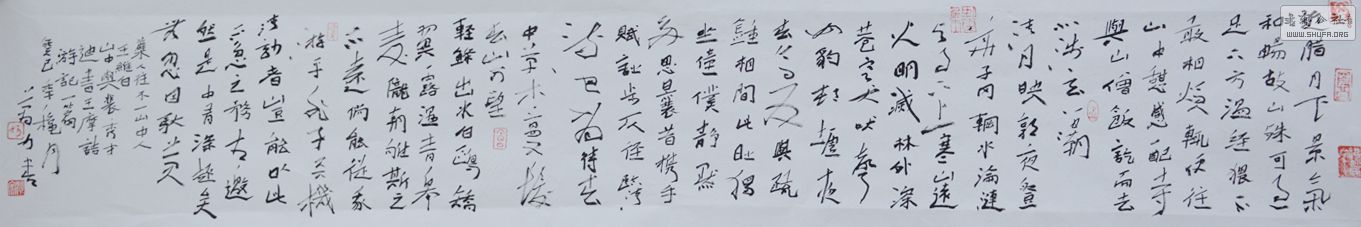 腊月下景氣
和暢故山殊可過
足下方溫經猥不
敢相煩輒便往
山中憩感配寺
與山僧飯訖而去
北涉玄灞
清月映郭夜登
華子岡輞水淪漣
與月上下寒山遠
火明滅林外深
巷寒犬吠聲
如豹村墟夜
舂復與疏
鐘相間此時獨
坐僮僕靜默
多思曩昔攜手
賦詩步仄徑臨清
流也當待春
中草木蔓發
春山可望
輕鯈出水白鷗矯
翼露濕青皋
麥隴朝雊斯之
不遠倘能從我
遊乎非子天機
清妙者豈能以此
不急之務相邀
然是中有深趣矣
無忽因馱黃
蘗人往不一山中人
王維白
山中與裴秀才
迪書王摩詰
游記一篇
癸巳
書
WWW.SHUFA.ORG